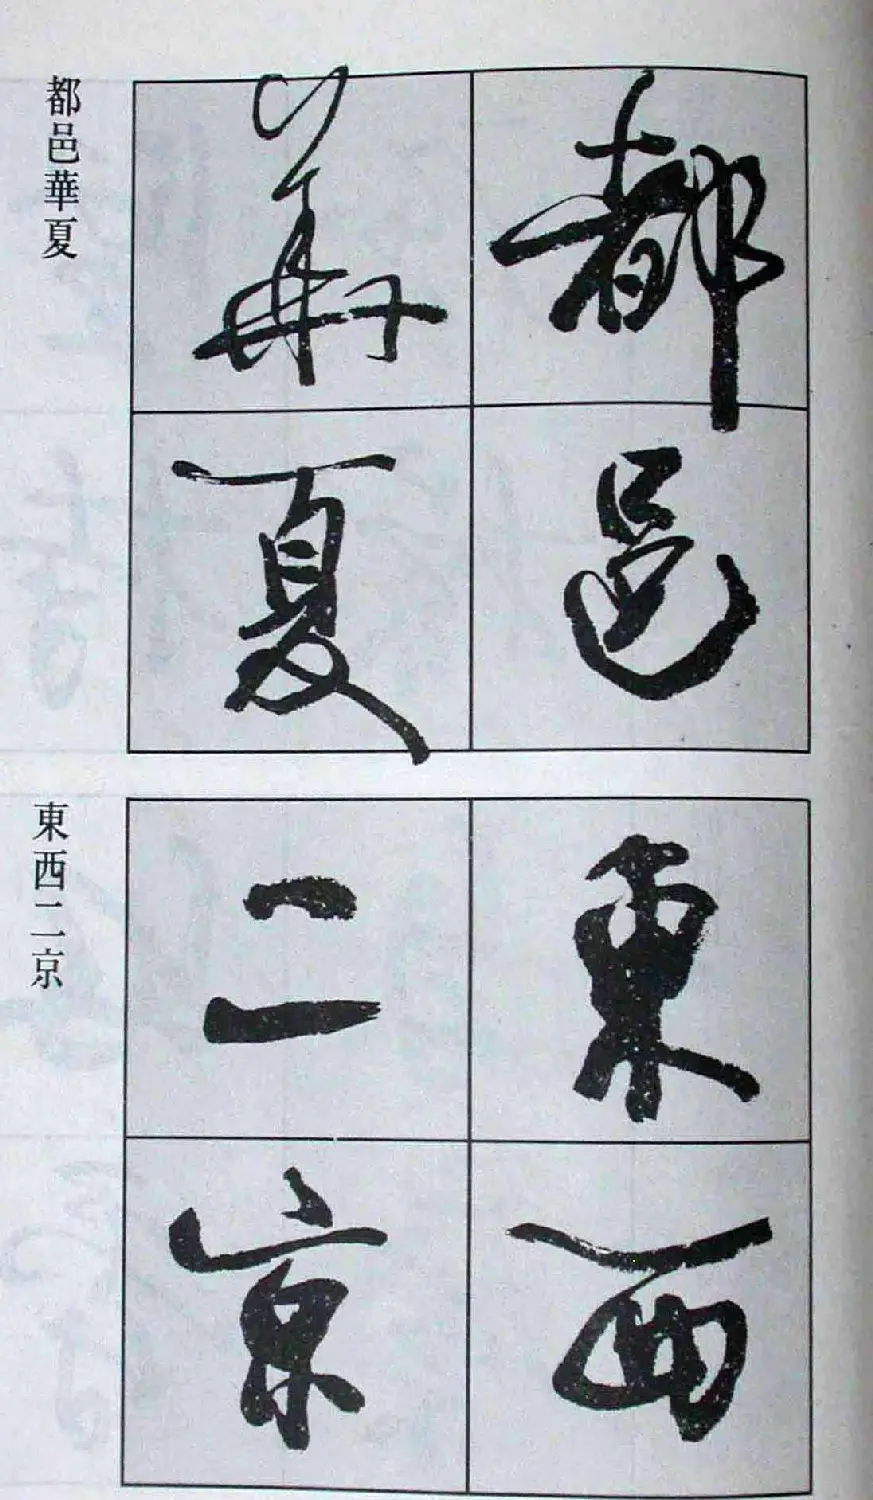 都邑
華夏
都邑華夏
東西
二京
東西二京